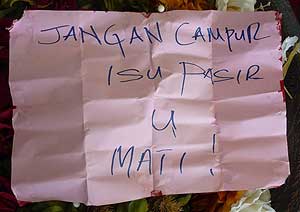 JANGAN CAMPUR
ISU PASIR
U
MATI!